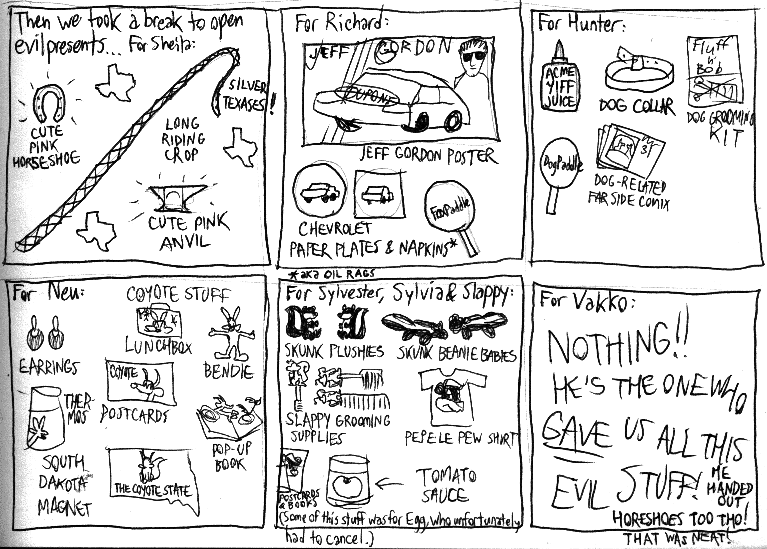 Then we took a break to open
evil presents... For Sheila:
CUTE
PINK
HORSESHOE
SILVER
TEXASES!
LONG
RIDING
CROP
CUTE PINK
ANVIL
For Richard:
JEFF GORDON
DUPONT
JEFF GORDON POSTER
CHEVROLET
PAPER PLATES & NAPKINS*
FoxPaddle
*aka OIL RAGS
For Hunter:
ACME
YIFF
JUICE
DOG COLLAR
Fluff
n'
Bob
DOG GROOMING
KIT
DogPaddle
DOG-RELATED
FAR SIDE COMIX
For Neu:
COYOTE STUFF
EARRINGS
LUNCHBOX
BENDIE
THER-
MOS
COYOTE
POSTCARDS
POP-UP
BOOK
SOUTH
DAKOTA
MAGNET
THE COYOTE STATE
For Sylvester, Sylvia & Slappy:
SKUNK PLUSHIES
SKUNK BEANIE BABIES
SLAPPY GROOMING
SUPPLIES
PEPE LE PEW SHIRT
POSTCARDS
& BOOKS
TOMATO
SAUCE
(Some of this stuff was for Egg, who unfortunately
had to cancel.)
For Vakko:
NOTHING!!
HE'S THE ONE WHO
GAVE US ALL THIS
EVIL STUFF!
HE
HANDED
OUT
HORESHOES TOO THO!
THAT WAS NEAT!